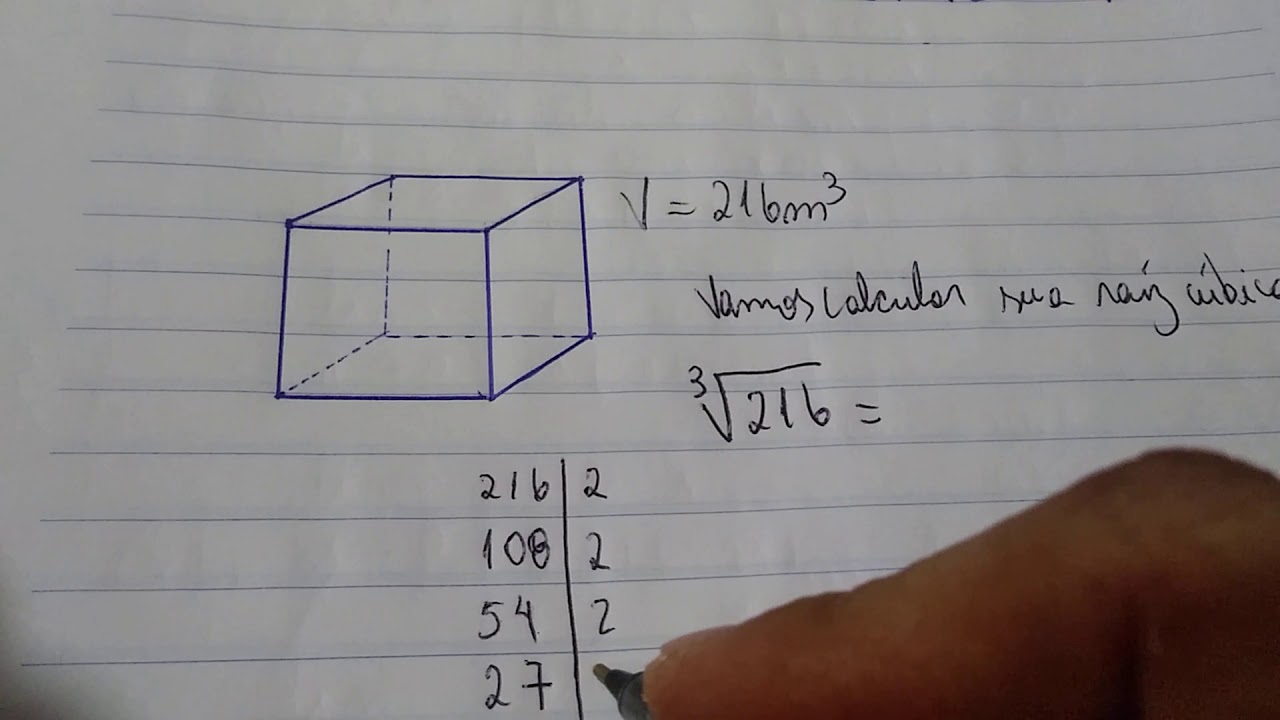 V = 216m³
Vamos calcular sua raíz cúbica
³√216 =
216 | 2
108 | 2
54 | 2
27 |